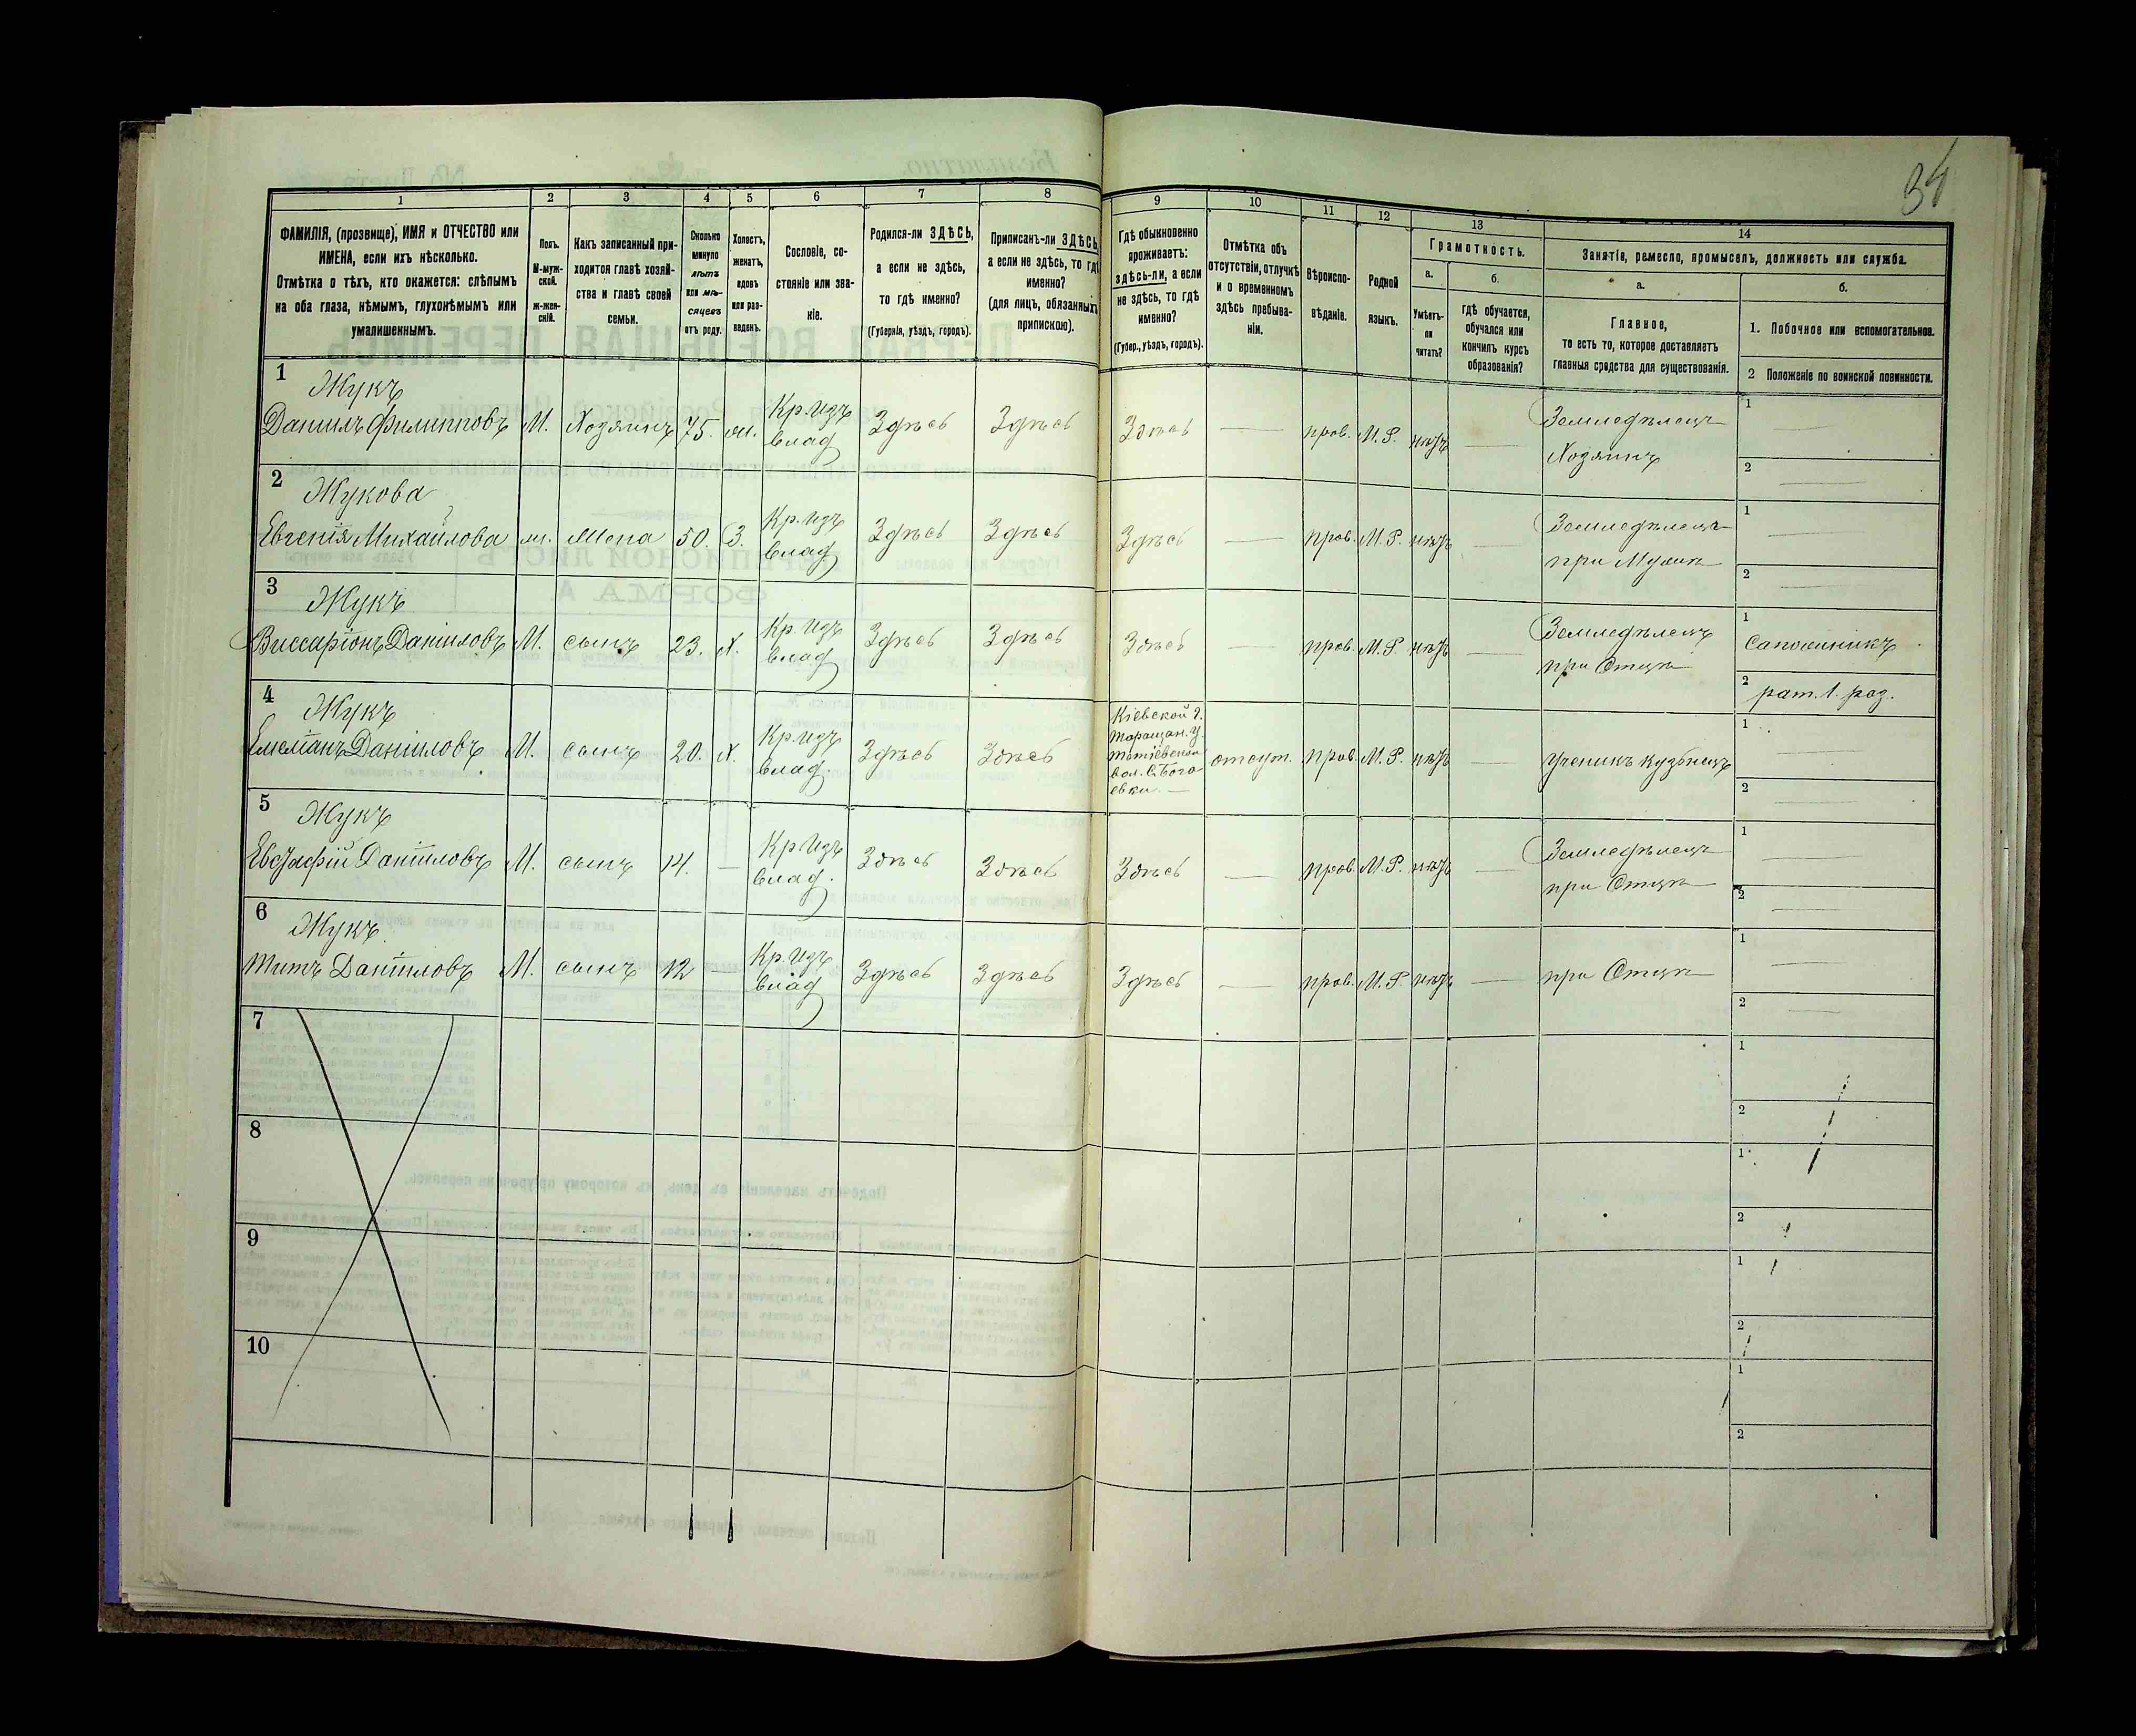 34
1 2 3 4 5 6 7 8 9 10 11 12 13 14
ФАМИЛІЯ, (прозвище), ИМЯ и ОТЧЕСТВО или
ИМЕНА, если ихъ нѣсколько.
Отмѣтка о тѣхъ, кто окажется: слѣпымъ
на оба глаза, нѣмымъ, глухонѣмымъ или
умалишеннымъ.
Полъ.
М-муж-
ской.
ж-жен-
скій.
Какъ записанный при-
ходится главѣ хозяй-
ства и главѣ своей
семьи.
Сколько
минуло
лѣтъ
или мѣ-
сяцевъ
отъ роду.
Холостъ,
женатъ,
вдовъ
или раз-
веденъ.
Сословіе, со-
стояніе или зва-
ніе.
Родился-ли ЗДѢСЬ,
а если не здѣсь,
то гдѣ именно?
(Губернія, уѣздъ, городъ).
Приписанъ-ли ЗДѢСЬ,
а если не здѣсь, то гдѣ
именно?
(для лицъ, обязанныхъ
припискою).
Гдѣ обыкновенно
проживаетъ:
здѣсь-ли, а если
не здѣсь, то гдѣ
именно?
(Губер., уѣздъ, городъ).
Отмѣтка объ
отсутствіи, отлучкѣ
и о временномъ
здѣсь пребыва-
ніи.
Вѣроиспо-
вѣданіе.
Родной
языкъ.
Грамотность.
а.
Умѣетъ-
ли
читать?
б.
гдѣ обучается,
обучался или
кончилъ курсъ
образованія?
Занятія, ремесло, промыселъ, должность или служба.
а.
Главное,
то есть то, которое доставляетъ
главныя средства для существованія.
б.
1. Побочное или вспомогательное.
2 Положеніе по воинской повинности.
1 Жукъ
Даніилъ Филипповъ М. Хозяинъ 75. ж. Кр. изъ Здѣсь Здѣсь Здѣсь — прав. М.Р. нѣтъ — Земледѣлецъ 1 —
влад Хозяинъ 2 —
2 Жукова
Евгенія Михайлова ж. Жена 50. З. Кр. изъ Здѣсь Здѣсь Здѣсь — прав. М.Р. нѣтъ — Земледѣлецъ 1 —
влад при Мужѣ 2 —
3 Жукъ
Виссаріонъ Даніиловъ М. сынъ 23. Х. Кр. изъ Здѣсь Здѣсь Здѣсь — прав. М.Р. нѣтъ — Земледѣлецъ 1 Сапожникъ
влад при Отцѣ 2 рат. 1. раз.
4 Жукъ
Даніиловъ М. сынъ 20. Х. Кр. изъ Здѣсь Здѣсь
влад.
Кіевской г.
Таращан. у.
вол.
отсут. прав. М.Р. нѣтъ — Ученикъ Кузнецъ 1 —
2 —
5 Жукъ
Евстафій Даніиловъ М. сынъ 14. — Кр. изъ Здѣсь Здѣсь Здѣсь — прав. М.Р. нѣтъ — Земледѣлецъ 1 —
влад. при Отцѣ 2 —
6 Жукъ
Титъ Даніиловъ М. сынъ 12 — Кр. изъ Здѣсь Здѣсь Здѣсь — прав. М.Р. нѣтъ — при Отцѣ 1 —
влад 2 —
7 1
2
8 1
2
9 1
2
10 1
2